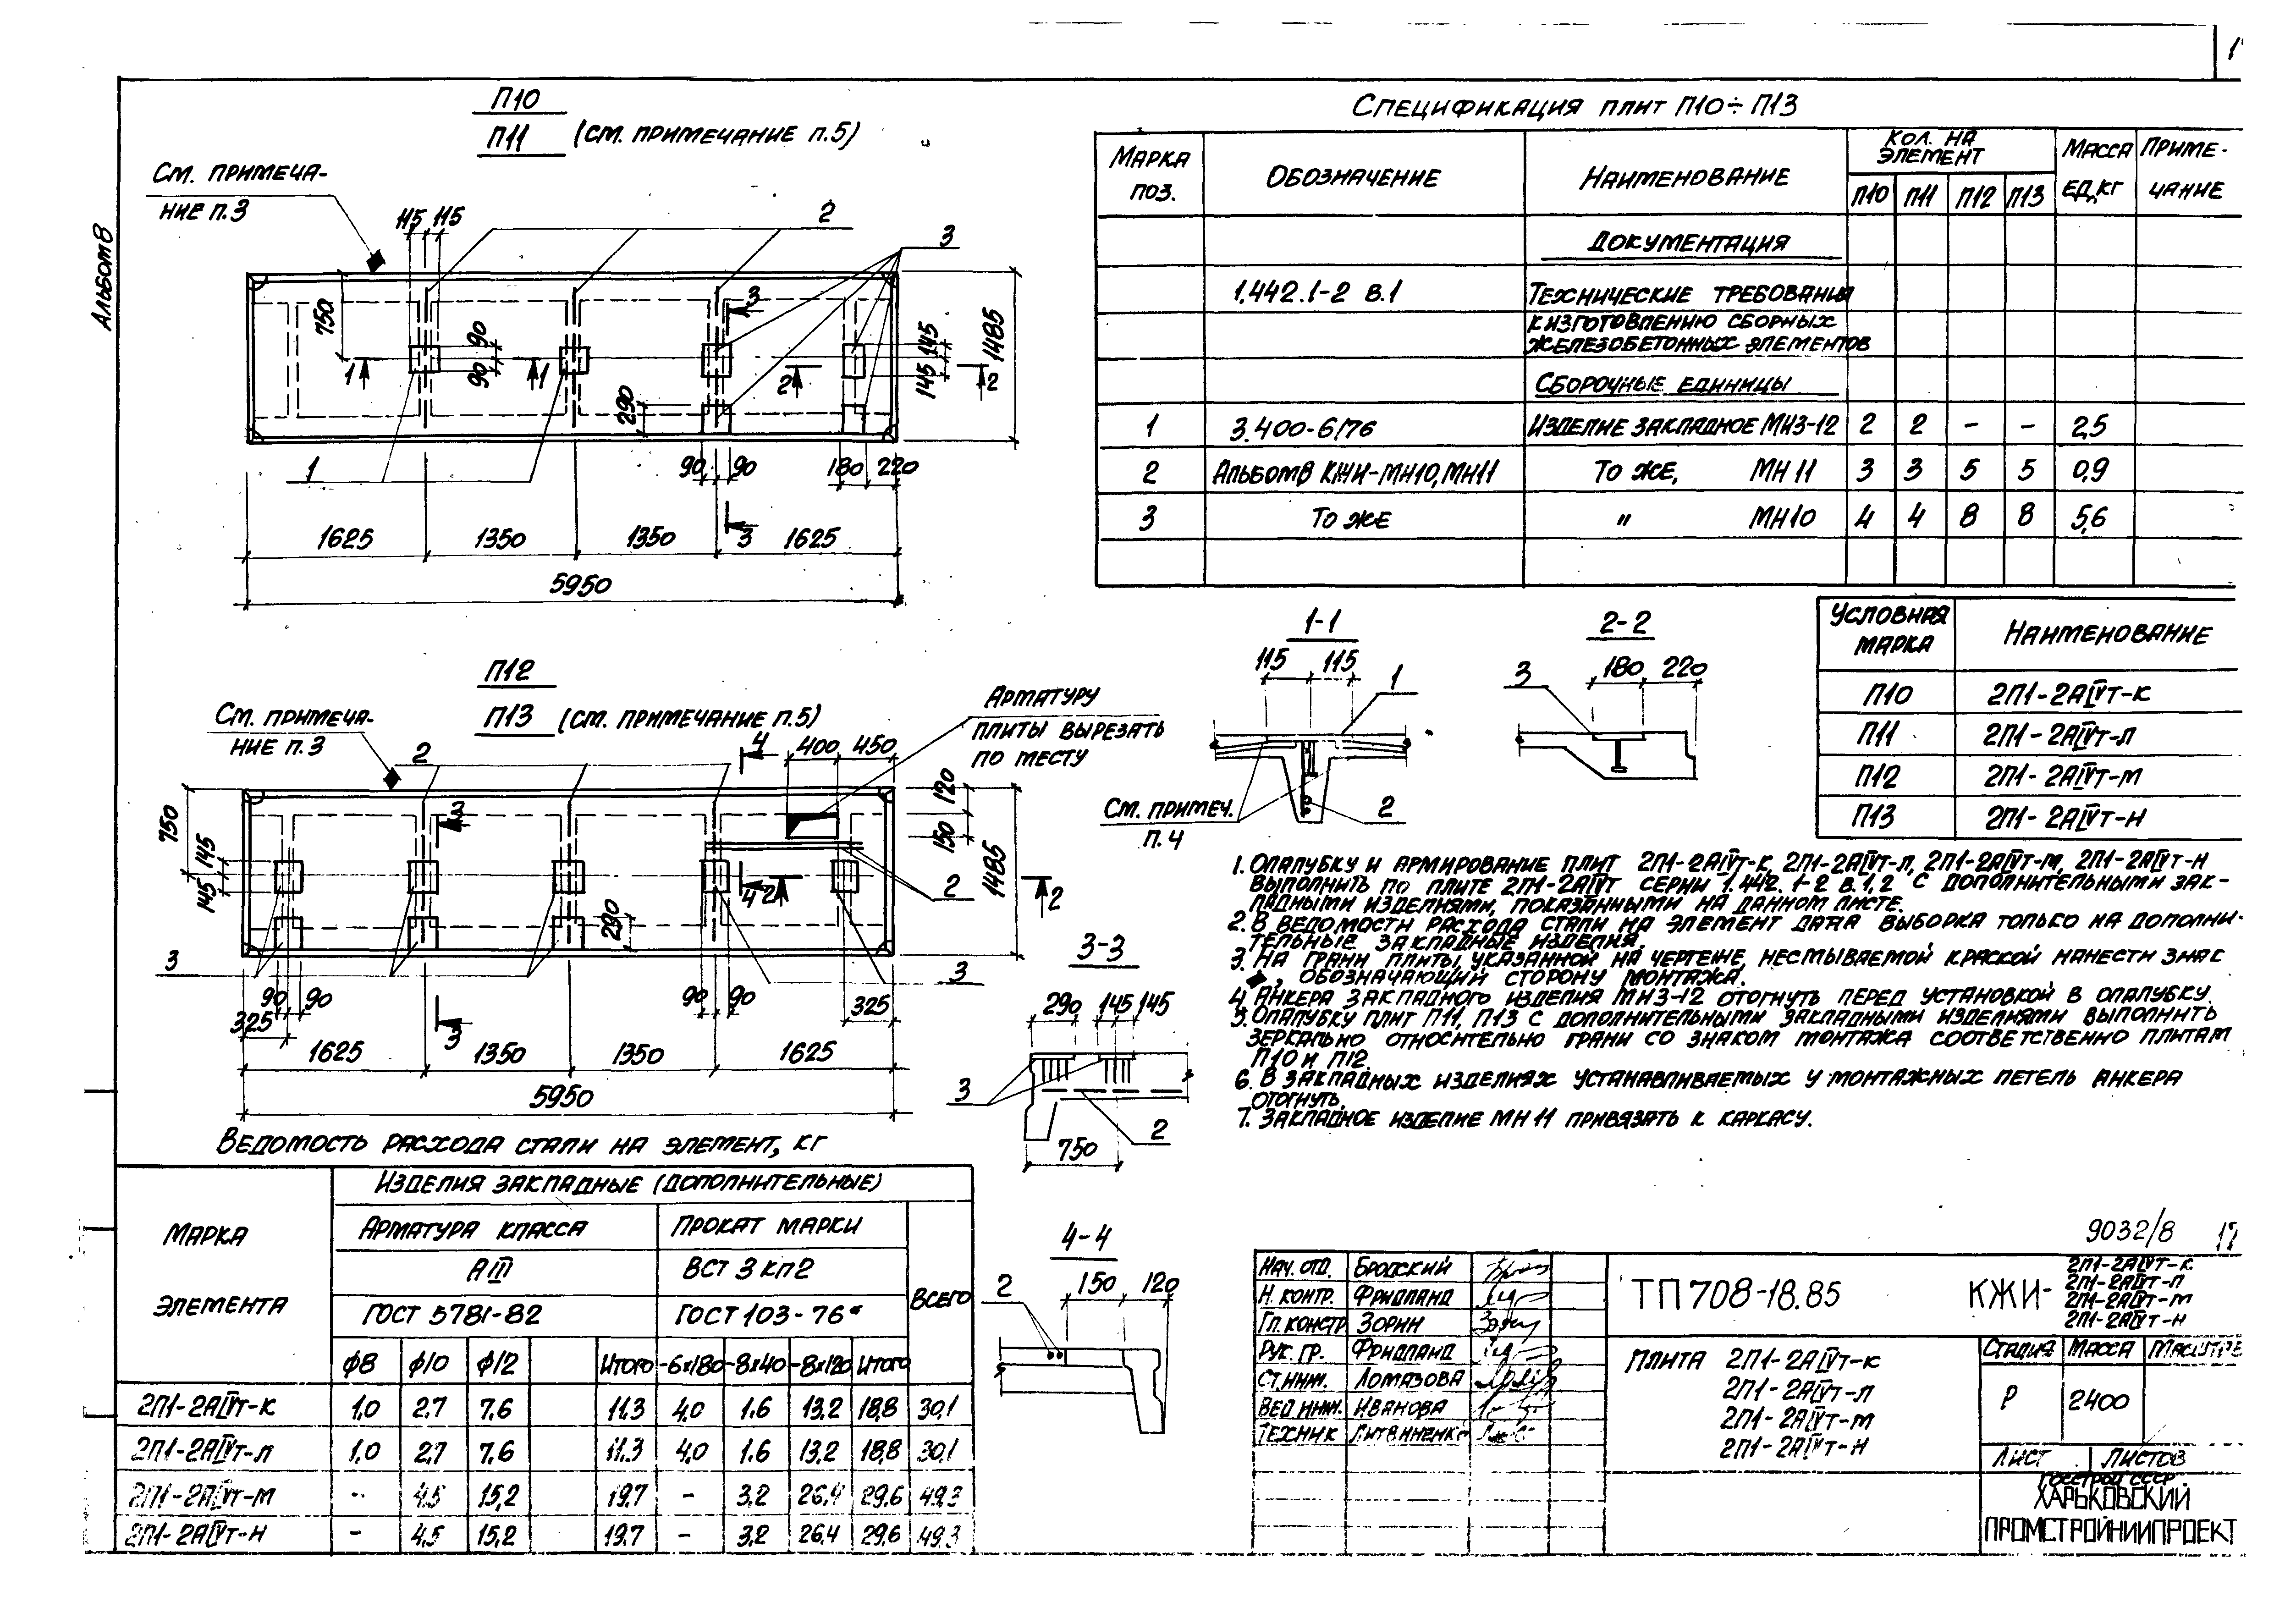 Альбом 8
П10
П11 (см. примечание п.5)
См. примеча-
ние п.3
115 115
2
3
750
90
90
1
1
3
2
2
145
145
1485
290
1
90 90
180 220
3
1625 1350 1350 1625
5950
П12
П13 (см. примечание п.5)
См. примеча-
ние п.3
Арматуру
плиты вырезать
по месту
2
4
400 450
120
150
750
145
145
3
4
2
2
2
1485
290
3
3
90 90
90 90
325
325
3
1625 1350 1350 1625
5950
Спецификация плит П10÷П13
Марка
поз.
Обозначение
Наименование
Кол. на
элемент
П10 П11 П12 П13
Масса
ед, кг
Приме-
чание
Документация
1.442.1-2 в.1 Технические требования
к изготовлению сборных
железобетонных элементов
Сборочные единицы
1 3.400-6/76 Изделие закладное МН3-12 2 2 - - 2,5
2 Альбом 8 КЖИ-МН10, МН11 То же, МН 11 3 3 5 5 0,9
3 То же " МН10 4 4 8 8 5,6
1-1
115 115
1
См. примеч.
п. 4
2
2-2
3
180 220
Условная
марка
Наименование
П10 2П1-2АIVт-к
П11 2П1-2АIVт-л
П12 2П1-2АIVт-м
П13 2П1-2АIVт-н
3-3
290 145 145
3
2
750
4-4
2
150 120
1. Опалубку и армирование плит 2П1-2АIVт-к, 2П1-2АIVт-л, 2П1-2АIVт-м, 2П1-2АIVт-н
выполнить по плите 2П1-2АIVт серии 1.442.1-2 в.1,2 с дополнительными зак-
ладными изделиями, показанными на данном листе.
2. В ведомости расхода стали на элемент дана выборка только на дополни-
тельные закладные изделия.
3. На грани плиты, указанной на чертеже, несмываемой краской нанести знак
◆, обозначающий сторону монтажа.
4. Анкера закладного изделия МН3-12 отогнуть перед установкой в опалубку.
5. Опалубку плит П11, П13 с дополнительными закладными изделиями выполнить
зеркально относительно грани со знаком монтажа соответственно плитам
П10 и П12.
6. В закладных изделиях устанавливаемых у монтажных петель анкера
отогнуть.
7. Закладное изделие МН 11 привязать к каркасу.
Ведомость расхода стали на элемент, кг
Марка
элемента
Изделия закладные (дополнительные)
Арматура класса Прокат марки
АIII ВСт 3 кп2
ГОСТ 5781-82 ГОСТ 103-76*
Всего
ф8 ф10 ф12 Итого -6х180 -8х40 -8х120 Итого
2П1-2АIVт-к 1,0 2.7 7.6 11.3 4,0 1.6 13.2 18,8 30,1
2П1-2АIVт-л 1,0 2,7 7.6 11.3 4,0 1.6 13,2 18,8 30,1
2П1-2АIVт-м - 4,5 15,2 19,7 - 3.2 26,4 29,6 49,3
2П1-2АIVт-н - 4,5 15,2 19,7 - 3,2 26.4 29,6 49,3
9032/8
Нач. отд. Бродский
Н. контр. Фридланд
Гл. констр Зорин
Рук. гр. Фридланд
Ст. инж. Ломазова
Вед инж. Иванова
Техник Литвиненко
ТП 708-18.85
КЖИ-
2П1-2АIVт-к
2П1-2АIVт-л
2П1-2АIVт-м
2П1-2АIVт-н
Плита 2П1-2АIVт-к
2П1-2АIVт-л
2П1-2АIVт-м
2П1-2АIVт-н
Стадия Масса
Р 2400
Лист Листов
Госстрой СССР
ХАРЬКОВСКИЙ
ПРОМСТРОЙНИИПРОЕКТ